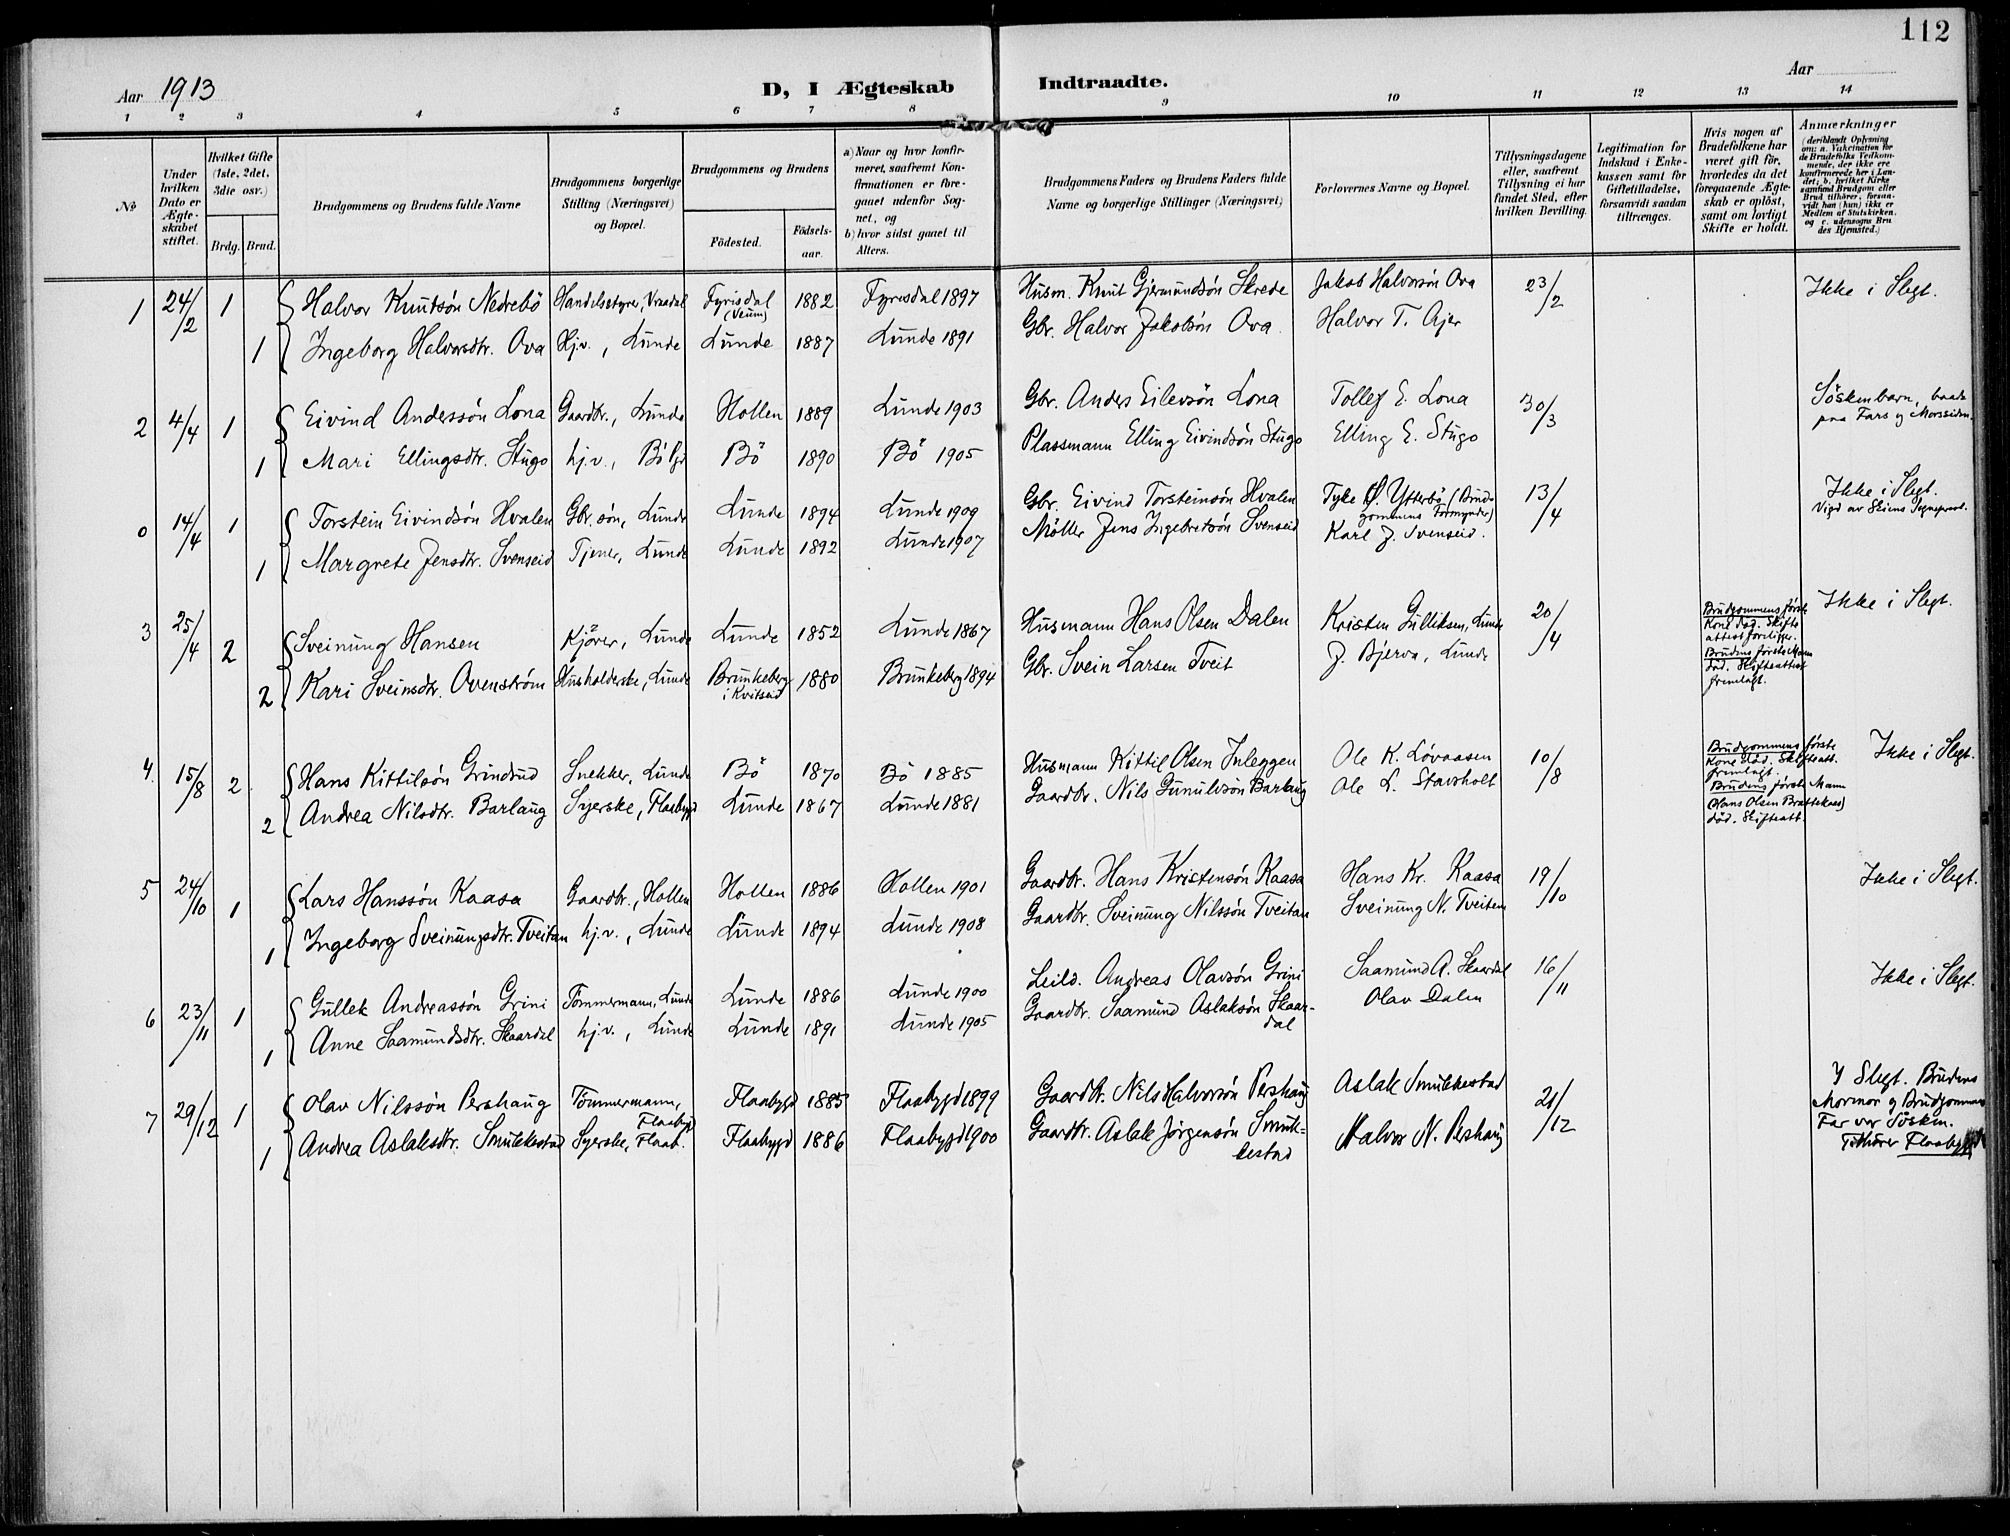 112
Aar 1913
D, I Ægteskab Indtraadte.
Aar
1 2 3 4 5 6 7 8 9 10 11 12 13 14
No
Under hvilken Dato er Ægteskabet stiftet.
Hvilket Gifte (1ste, 2det, 3die osv.)
Brdg. Brud.
Brudgommens og Brudens fulde Navne
Brudgommens borgerlige Stilling (Næringsvei) og Bopæl.
Brudgommens og Brudens
Födested. Födselsaar.
a) Naar og hvor konfirmeret, saafremt Konfirmationen er foregaaet udenfor Sognet, og
b) hvor sidst gaaet til Alters.
Brudgommens Faders og Brudens Faders fulde Navne og borgerlige Stillinger (Næringsvei)
Forlovernes Navne og Bopæl.
Tillysningsdagene eller, saafremt Tillysning ei har fundet Sted, efter hvilken Bevilling.
Legitimation for Indskud i Enkekassen samt for Giftetilladelse, forsaavidt saadan tiltrænges.
Hvis nogen af Brudefolkene har været gift för, hvorledes da det foregaaende Ægteskab er oplöst, samt om lovligt Skifte er holdt.
Anmærkninger
(deriblandt Oplysning om: a. Vakcination for de Brudefolks Vedkommende, der ikke ere konfirmerede her i Landet; b. hvilket Kirkesamfund Brudgom eller Brud tilhörer, forsaavidt han (hun) ikke er Medlem af Statskirken, og c. udensogns Brudes Hjemsted.)
1 24/2 1 Halvor Knutsön Nedrebö Handelsstyre, Vraadal Fyrisdal (Veum) 1882 Fyrisdal 1897 Husm. Knut Gjermundsön Skrede Jakob Halvorsön Ova 23/2 Ikke i Slegt.
1 Ingeborg Halvorsdtr. Ova Hj.v., Lunde Lunde 1887 Lunde 1891 Gbr. Halvor Jakobsön Ova Halvor T. Ajer
2 4/4 1 Eivind Anderssön Lona Gaardbr., Lunde Hollen 1889 Lunde 1903 Gbr. Anders Eilevsön Lona Tollef E. Lona 30/3 Söskenbarn, baade paa Fars og Morssiden.
1 Mari Ellingsdtr. Stugo hj.v., Bö Bö 1890 Bö 1905 Plassmann Elling Eivindsön Stugo Elling E. Stugo
0 14/4 1 Torstein Eivindsön Hvalen Gbr. sön, Lunde Lunde 1894 Lunde 1909 Gbr. Eivind Torsteinsön Hvalen Tyke Ø. Ytterbö (Brudgommens Formynder) 13/4 Ikke i Slegt. Vigd av Skiens Sogneprest.
1 Margrete Jensdtr. Svenseid Tjener, Lunde Lunde 1892 Lunde 1907 Möller Jens Ingebretsön Svenseid Karl J. Svenseid.
3 25/4 2 Sveinung Hansen Kjörer, Lunde Lunde 1852 Lunde 1867 Husmann Hans Olsen Dalen Kristen Gulliksen, Lunde 20/4 Brudgommens förste Kone död. Skifteattest foreligger. Ikke i Slegt.
2 Kari Sveinsdtr. Ovenström Husholderske, Lunde Brunkeberg i Kvitseid 1880 Brunkeberg 1894 Gbr. Svein Larsen Tveit J. Bjerva, Lunde Brudens förste Mann död. Skifteattest fremlagt.
4 15/8 2 Hans Kittilsön Grindrud Snekker, Lunde Bö 1870 Bö 1885 Husmann Kittil Olsen Inleggen Ole K. Lövaasen 10/8 Brudgommens förste Kone död. Skifteatt. fremlagt. Ikke i Slegt.
2 Andrea Nilsdtr. Barlaug Syerske, Flaabygd Lunde 1867 Lunde 1881 Gaardbr. Nils Gunulvsön Barlaug Ole L. Stavsholt Brudens förste Mann (Hans Olsen Brattekaas) död. Skifteatt.
5 24/10 1 Lars Hanssön Kaasa Gaardbr., Hollen Hollen 1886 Hollen 1901 Gaardbr. Hans Kristensön Kaasa Hans Kr. Kaasa 19/10 Ikke i Slegt.
1 Ingeborg Sveinungsdtr. Tveitan hj.v., Lunde Lunde 1894 Lunde 1908 Gaardbr. Sveinung Nilssön Tveitan Sveinung N. Tveiten
6 23/11 1 Gullek Andreassön Grini Tömmermann, Lunde Lunde 1886 Lunde 1900 Leild. Andreas Olavsön Grini Saamund A. Skaardal 16/11 Ikke i Slegt.
1 Anne Saamundsdtr. Skaardal hj.v., Lunde Lunde 1891 Lunde 1905 Gaardbr. Saamund Aslaksön Skaardal Olav Dalen
7 29/12 1 Olav Nilssön Pershaug Tömmermann, Flaabygd Flaabygd 1885 Flaabygd 1899 Gaardbr. Nils Halvorsön Pershaug Aslak Smukkestad 21/12 I Slegt. Brudens Mormor og Brudgommens Far var Sösken. Tilhörer Flaabygd
1 Andrea Aslaksdtr. Smukkestad Syerske, Flaab. Flaabygd 1886 Flaabygd 1900 Gaardbr. Aslak Jörgensön Smukkestad Halvor N. Pershaug